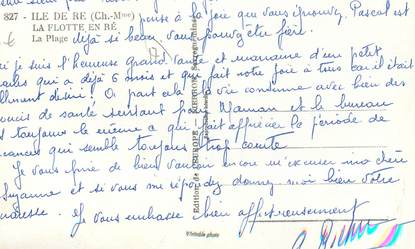 pense à la joie que vous éprouvez. Pascal est
827 - ILE DE RE (Ch.-Mme)
LA FLOTTE EN RÉ
La Plage
déjà si beau vous pouvez être fière.
je suis l'heureuse grand et marraine d'un petit
qui a déjà 6 mois et qui fait notre joie à tous car il était
désiré! A part cela la vie continue avec bien des
soucis de santé surtout pour Maman et le bureau
toujours le même ce qui fait apprécier la période de
vacances qui semble toujours trop courte
Je vous prie de bien vouloir encore m'excuser ma chère
Suzanne et si vous me répondez donnez moi bien votre
adresse. Je vous embrasse bien affectueusement
Véritable photo